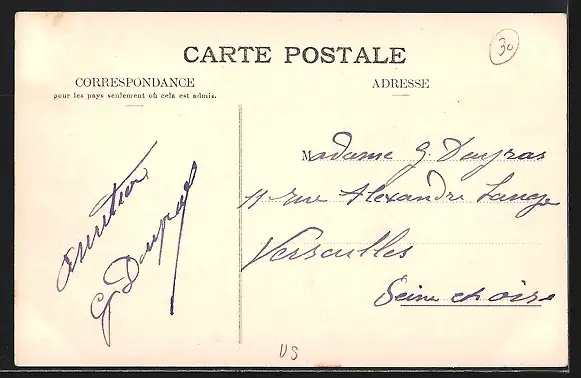 30
CARTE POSTALE
CORRESPONDANCE
pour les pays seulement où cela est admis.
ADRESSE
Amitiés
G. Dayras
Madame G. Dayras
11 rue Alexandre Lange
Versailles
Seine et oise
VS